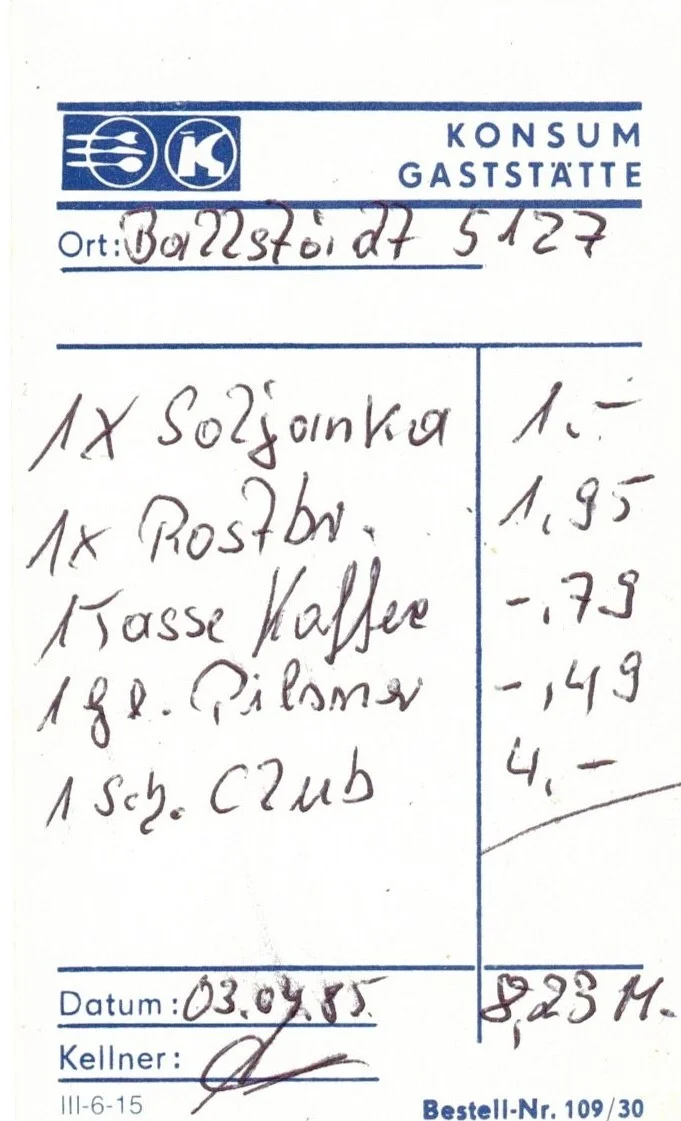 K
KONSUM
GASTSTÄTTE
Ort: Ballstädt 5127
1x Soljanka 1,-
1x Rostbr. 1,95
1 Tasse Kaffee -,79
1 Gl. Pilsner -,49
1 Sch. Club 4,-
Datum: 03.04.85. 8,23 M.
Kellner:
III-6-15 Bestell-Nr. 109/30